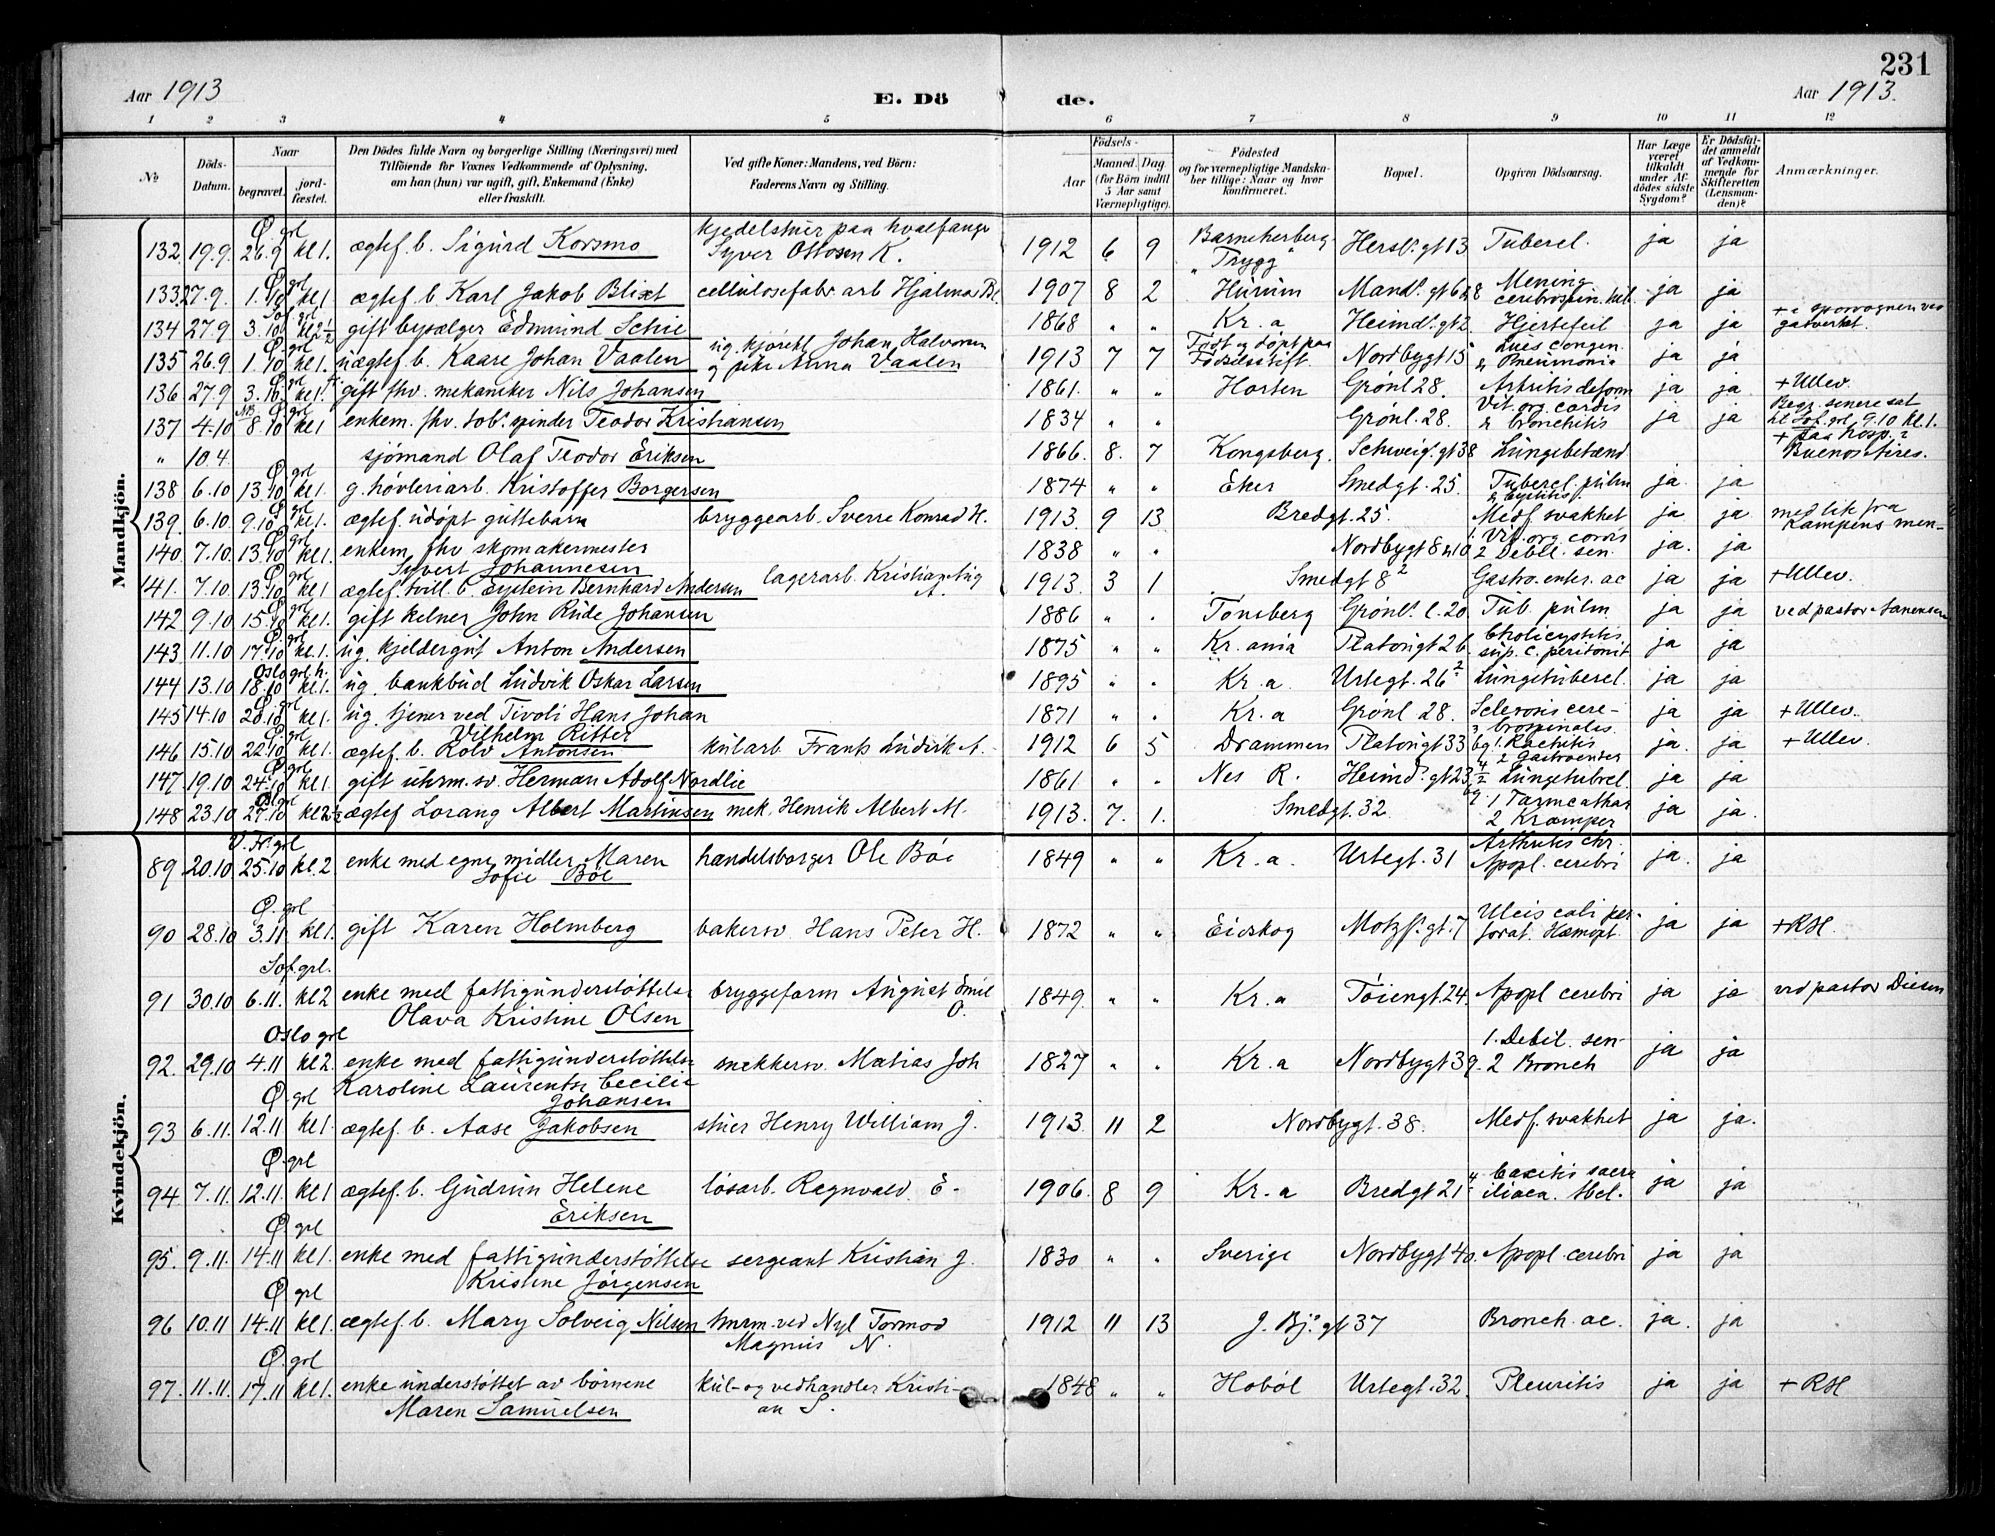 231
Aar 1913
E. Dö
de.
Aar 1913.
1 2 3 4 5 6 7 8 9 10 11 12
No
Döds-Datum.
Naar
begravet.
jord-fæstet.
Den Dödes fulde Navn og borgerlige Stilling (Næringsvei) med
Tilföiende for Voxnes Vedkommende af Oplysning,
om han (hun) var ugift, gift, Enkemand (Enke)
eller fraskilt.
Ved gifte Koner: Mandens, ved Börn:
Faderens Navn og Stilling.
Födsels-
Aar
Maaned. Dag
(for Börn indtil 5 Aar samt Værnepligtige).
Födested
og for værnepligtige Mandska-
ber tillige: Naar og hvor
konfirmeret.
Bopæl.
Opgiven Dödsaarsag.
Har Læge været tilkaldt under Afdödes sidste Sygdom?
Er Dödsfaldet anmeldt af Vedkommende for Skifteretten (Lensmanden)?
Anmærkninger.
Mandkjön.
Ø. grl kjedelstuer paa hvalfanger Barneherberg.
132. 19.9. 26.9 kl 1. ægtef. b. Sigurd Korsmo Syver Ottosen K. 1912 6 9 "Trygg" Hersl.s gt 13 Tubercl. ja ja
133. 27.9. 1.10 kl 1 ægtef. b Karl Jakob Blixt cellulosefabr. arb Hjalmar Bl. 1907 8 2 Hurum Mand.s gt 6 Mening. cerebrospin. ja ja
134 27.9 3.10 kl 2½ gift bysælger Edmund Schie 1868 " " Kr.a Heimd.s gt 2. Hjertefeil ja ja + i sporvognen ved gasverket.
135 26.9 1.10 kl 1. uægtef. b. Kaare Johan Vaalen ug. Johan Halvorsen og pike Anna Vaalen 1913 7 7 Født og døpt paa Fødselsstift. Nordbygt 15 Lues congen. & Pneumonia ja ja
136 27.9 3.10. kl 1. gift fhv. mekaniker Nils Johansen 1861. " " Horten Grønl 28. Artritis deform ja ja + Ullev.
137 4.10 8.10 kl 1 enkem. fhv. tob.s spinder Teodor Kristiansen 1834 " " Grønl. 28. Vit. org. cordis & bronchitis ja ja Begr. senere sat til Sof. grl 9.10 kl 1.
" 10.4. sjømand Olaf Teodor Eriksen 1866. 8. 7 Kongsberg. Schweig.s gt 38 Lungebetænd + paa hosp. i Buenos Aires.
138 6.10 13.10 kl 1. g. høvleriarb. Kristoffer Borgersen 1874 " " Eker Smedgt. 25. Tubercl. pulm & Cystitis. ja. ja
139. 6.10. 9.10 kl 1. ægtef. udøpt guttebarn bryggearb. Sverre Konrad H. 1913. 9 13 Bredgt. 25. Medf. svakhet ja ja. med lik fra Kampens men-
140. 7.10. 13.10 kl 1. enkem. fhv skomakermester Syvert Johannesen 1838 " " Nordbygt 8 1. Vit. org. cordis 2 Debil. sen. ja. ja
141. 7.10. 13.10 kl 1 ægtef. tvill. b Eystein Bernhard Andersen lagerarb. Kristian Aug A. 1913. 3 1 Smedgt 8² Gastro. enter. ac ja ja + Ullev.
142 9.10 15.10 kl 1. gift kelner John Rude Johansen 1886 " . Tønsberg Grønl.s l. 20 Tub. pulm ja ja ved pastor
143 11.10 17.10 kl. 1. ug. kjeldergut Anton Andersen 1875 " " Kr.ania Platougt 26. Cholicystitis. sup. c. peritonit ja ja
Oslo grl. h.
144 13.10 18.10 kl 1. ug. bankbud Ludvik Oskar Larsen 1895 " . Kr.a. Urtegt. 26² Lungetubercl. ja ja
145 14.10 20.10 kl 1. ug. tjener ved Tivoli Hans Johan Vilhelm Ritter 1871 " . Kr.a Grønl 28. Sclerosis cerebrospinalis. ja ja + Ullev.
146 15.10 22.10 kl 1. ægtef. b. Rolv Antonsen kularb. Frants Ludvik A. 1912 6 5 Drammen Platougt 33 1. Rachitis 2 Gastroenter ja. ja + Ullev.
147. 19.10 24.10 kl 1 gift uhrm. sv. Herman Adolf Nordlie 1861 " " Nes R. Heimd.s gt 23 Lungetubrcl. ja ja
148 23.10 27.10 kl 2½ ægtef Lorang Albert Martinsen mek. Henrik Albert M. 1913. 7. 1. Smedgt. 32. 1 Tarmcathar 2 Kramper ja ja.
Kvindekjön.
V. Fr. grl Arthritis chr.
89 20.10 25.10 kl. 2 enke med egne midler Maren Sofie Bøe handelsborger Ole Bøe 1849 " " Kr.a. Urtegt. 31 Apopl. cerebri ja. ja
Ø. grl
90 28.10 3.11. kl 1. gift Karen Holmberg bakersv Hans Peter H. 1872 " " Eidskog Motzf.s gt. 7 perforat. Hæmopt. ja ja + RH.
Sof. grl.
91 30.10 6.11. kl 2 enke med fattigunderstøttelse Olava Kristine Olsen bryggeform August Emil O. 1849. " " Kr.a Tøiengt. 24. Apopl cerebri ja ja ved pastor Diesen
Oslo grl
92. 29.10 4.11 kl 2. enke med fattigunderstøttelse Karoline Laurentse Cecilie Johansen snekkersv. Matias Joh 1827 " " Kr.a Nordbygt 39. 1. Debil. sen- 2 Bronch ja ja
Ø. grl
93 6.11. 12.11 kl 1. ægtef. b. Aase Jakobsen stuer Henry William J. 1913. 11 2 Nordbygt. 38. Medf. svakhet ja ja.
Ø. grl
94 7.11. 12.11. kl 1 ægtef. b. Gudrun Helene Eriksen løsarb. Ragnvald E. 1906. 8 9 Kr.a Bredgt 21 Coxitis sacro iliaca. tbcl. ja ja
Ø grl
95. 9.11. 14.11 kl 1. enke med fattigunderstøttelse Kristine Jørgensen sergeant Kristian J. 1830 " . Sverige Nordbygt 40. Apopl. cerebri ja ja
Ø grl
96 10.11 14.11 kl 1. ægtef. b. Mary Solveig Nilsen ved Nyl Tormod Magnus N. 1912 11 13 J. Bj.s gt 37 Bronch. ac. ja. ja
Ø. grl
97. 11.11. 17.11 kl 1. enke understøttet av børnene Maren Samuelsen kul- og vedhandler Kristian S. 1848 " " Hobøl Urtegt. 32. Pleuritis ja ja + RH